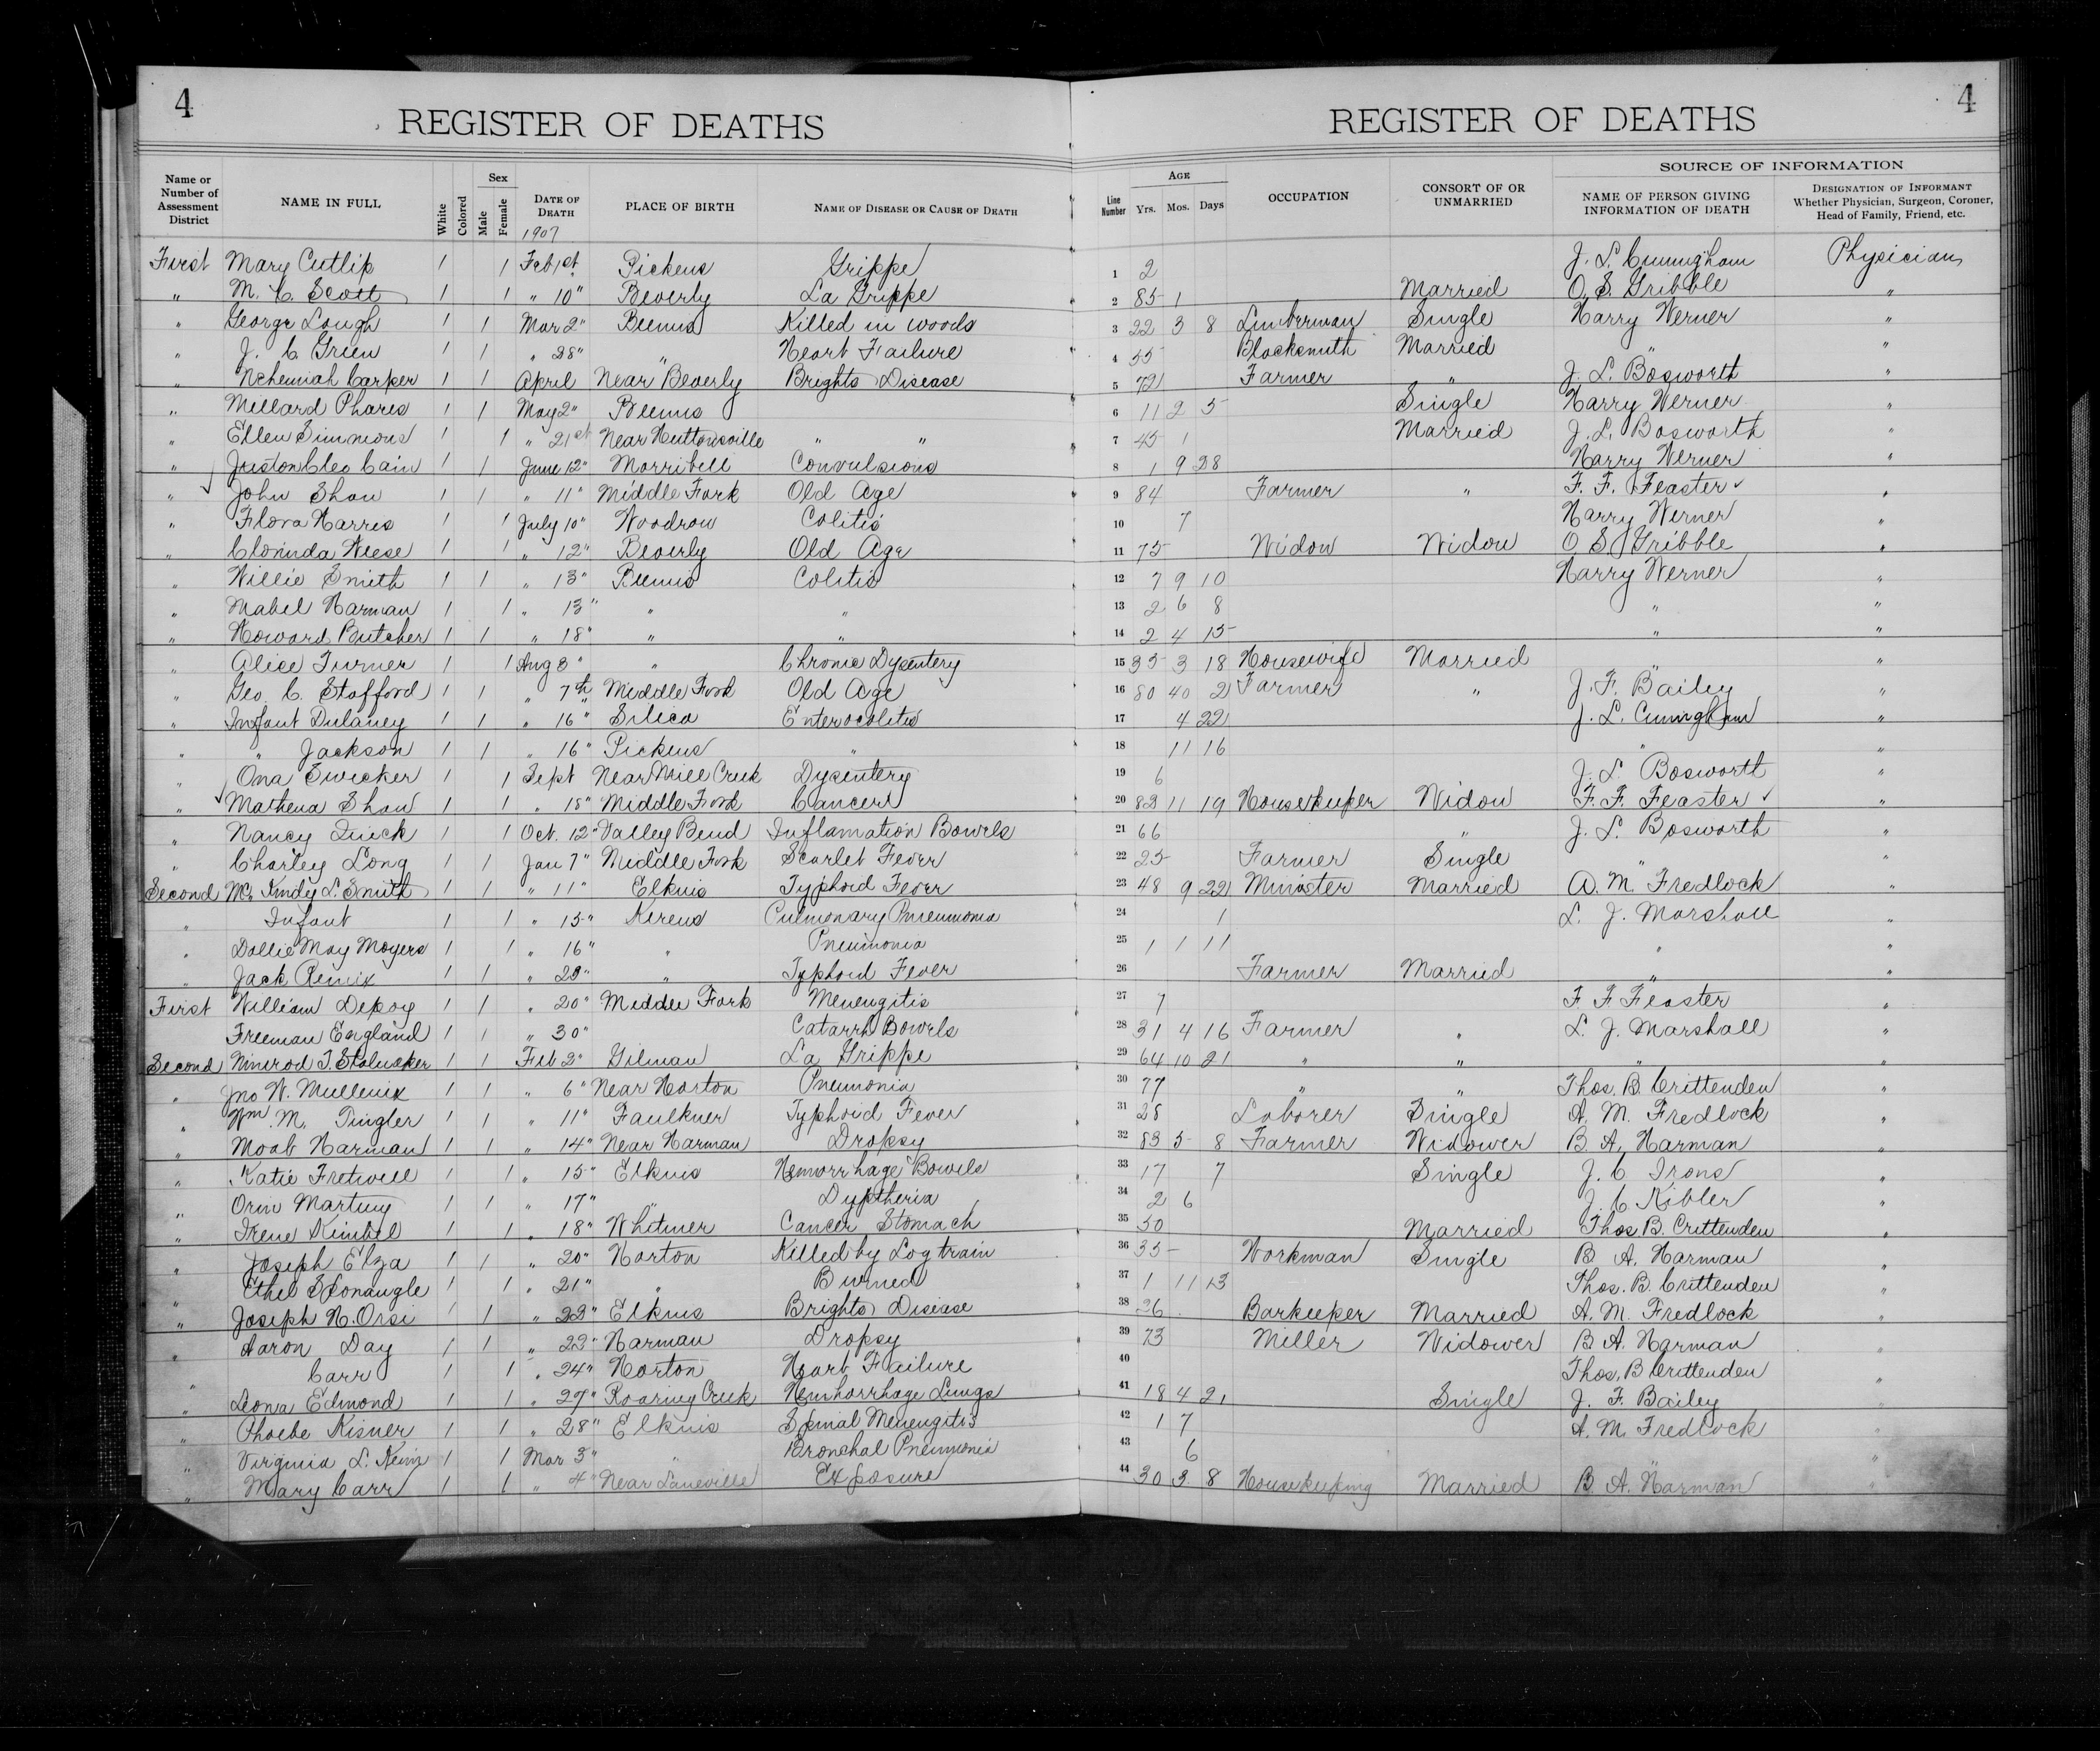 4
REGISTER OF DEATHS
REGISTER OF DEATHS
4
Name or Number of Assessment District
NAME IN FULL
White
Colored
Sex
Male
Female
DATE OF DEATH
1907
PLACE OF BIRTH
NAME OF DISEASE OR CAUSE OF DEATH
Line Number
AGE
Yrs. Mos. Days
OCCUPATION
CONSORT OF OR UNMARRIED
SOURCE OF INFORMATION
NAME OF PERSON GIVING INFORMATION OF DEATH
DESIGNATION OF INFORMANT Whether Physician, Surgeon, Coroner, Head of Family, Friend, etc.
First Mary Cutlip 1 1 Feb 1st Pickens Grippe 1 2 J. L. Cuningham Physician
" M. C. Scott 1 1 " 10" Beverly La Grippe 2 85 1 Married O. S. Gribble "
" George Lough 1 1 Mar 2" Bemis Killed in woods 3 22 3 8 Limberman Single Harry Werner "
" J. C. Green 1 1 " 28" " Heart Failure 4 55 Blacksmith Married " "
" Nehemiah Carper 1 1 April Near Beverly Brights Disease 5 72 Farmer " J. L. Bosworth "
" Millard Phares 1 1 May 2" Bemis 6 11 2 5 Single Harry Werner "
" Ellen Simmons 1 1 " 21st Near Huttonsville " " 7 45 1 Married J. L. Bosworth "
" Juston Cleo Cain 1 1 June 12" Morribell Convulsions 8 1 9 28 Harry Werner "
" John Shaw 1 1 " 11" Middle Fork Old Age 9 84 Farmer " F. F. Feaster "
" Flora Harris 1 1 July 10" Woodrow Colitis 10 7 Harry Werner "
" Clorinda Weese 1 1 " 12" Beverly Old Age 11 75 Widow Widow O S Gribble "
" Willie Smith 1 1 " 13" Bemis Colitis 12 7 9 10 Harry Werner "
" Mabel Harman 1 1 " 13" " " 13 2 6 8 " "
" Howard Butcher 1 1 " 18" " " 14 2 4 15 " "
" Alice Turner 1 1 Aug 3" " Chronic Dysentery 15 35 3 18 Housewife Married " "
" Geo. C. Stafford 1 1 " 7th Middle Fork Old Age 16 80 40 2 Farmer " J. F. Bailey "
" Infant Dulaney 1 1 " 16" Silica Enterocolitis 17 4 22 J. L. Cuningham "
" " Jackson 1 1 " 16" Pickens " 18 11 16 " "
" Ona Swecker 1 1 Sept Near Mill Creek Dysentery 19 6 J. L. Bosworth "
" Mathena Shaw 1 1 " 18" Middle Fork Cancer 20 82 11 19 Housekeeper Widow F. F. Feaster "
" Nancy Quick 1 1 Oct. 12" Valley Bend Inflamation Bowels 21 66 " J. L. Bosworth "
" Charley Long 1 1 Jan 7" Middle Fork Scarlet Fever 22 25 Farmer Single " "
Second Mc Kindy L. Smith 1 1 " 11" Elkins Typhoid Fever 23 48 9 22 Minister Married A. M. Fredlock "
" Infant 1 1 " 15" Kerens Culmonary Pneumonia 24 1 L. J. Marshall "
" Dollie May Moyers 1 1 " 16" " Pneumonia 25 1 1 11 " "
" Jack Remix 1 1 " 20" " Typhoid Fever 26 Farmer Married " "
First William Depoy 1 1 " 20" Middle Fork Menengitis 27 7 F. F Feaster "
Freeman England 1 1 " 30" Catarrh Bowels 28 31 4 16 Farmer " L. J. Marshall "
Second Nimrod T. Stalnaker 1 1 Feb 2" Gilman La Grippe 29 64 10 21 " " " "
" Jno W. Mullenix 1 1 " 6" Near Horton Pneumonia 30 77 " " Thos. B. Crittenden "
" Wm. M. Tingler 1 1 " 11" Faulkner Typhoid Fever 31 28 Laborer Single A. M. Fredlock "
" Moab Harman 1 1 " 14" Near Harman Dropsy 32 83 5 8 Farmer Widower B. A. Harman "
" Katie Fretwell 1 1 " 15" Elkins Hemorrhage Bowels 33 17 7 Single J. C Irons "
" Orin Marting 1 1 " 17" " Dyptheria 34 2 6 J. C Kibler "
" Irene Kimbel 1 1 " 18" Whitmer Cancer Stomach 35 50 Married Thos. B. Crittenden "
" Joseph Elza 1 1 " 20" Horton Killed by Log train 36 35 Workman Single B A. Harman "
" Ethel Sponaugle 1 1 " 21" " Burned 37 1 11 13 Thos. B. Crittenden "
" Joseph N. Orsi 1 1 " 22" Elkins Brights Disease 38 26 Barkeeper Married A. M. Fredlock "
" Aaron Day 1 1 " 23" Harman Dropsy 39 73 Miller Widower B A. Harman "
" Carr 1 1 " 24" Horton Heart Failure 40 Thos. B Crittenden "
" Leona Edmond 1 1 " 27" Roaring Creek Hemhorrhage Lungs 41 18 4 21 Single J. F. Bailey "
" Phoebe Kisner 1 1 " 28" Elkins Spinal Menengitis 42 1 7 A. M. Fredlock "
" Virginia L. Keim 1 1 Mar 3" " Bronchal Pneumonia 43 6 " "
" Mary Carr 1 1 " 4" Near Laneville Exposure 44 30 3 8 Housekeeping Married B. A. Harman "